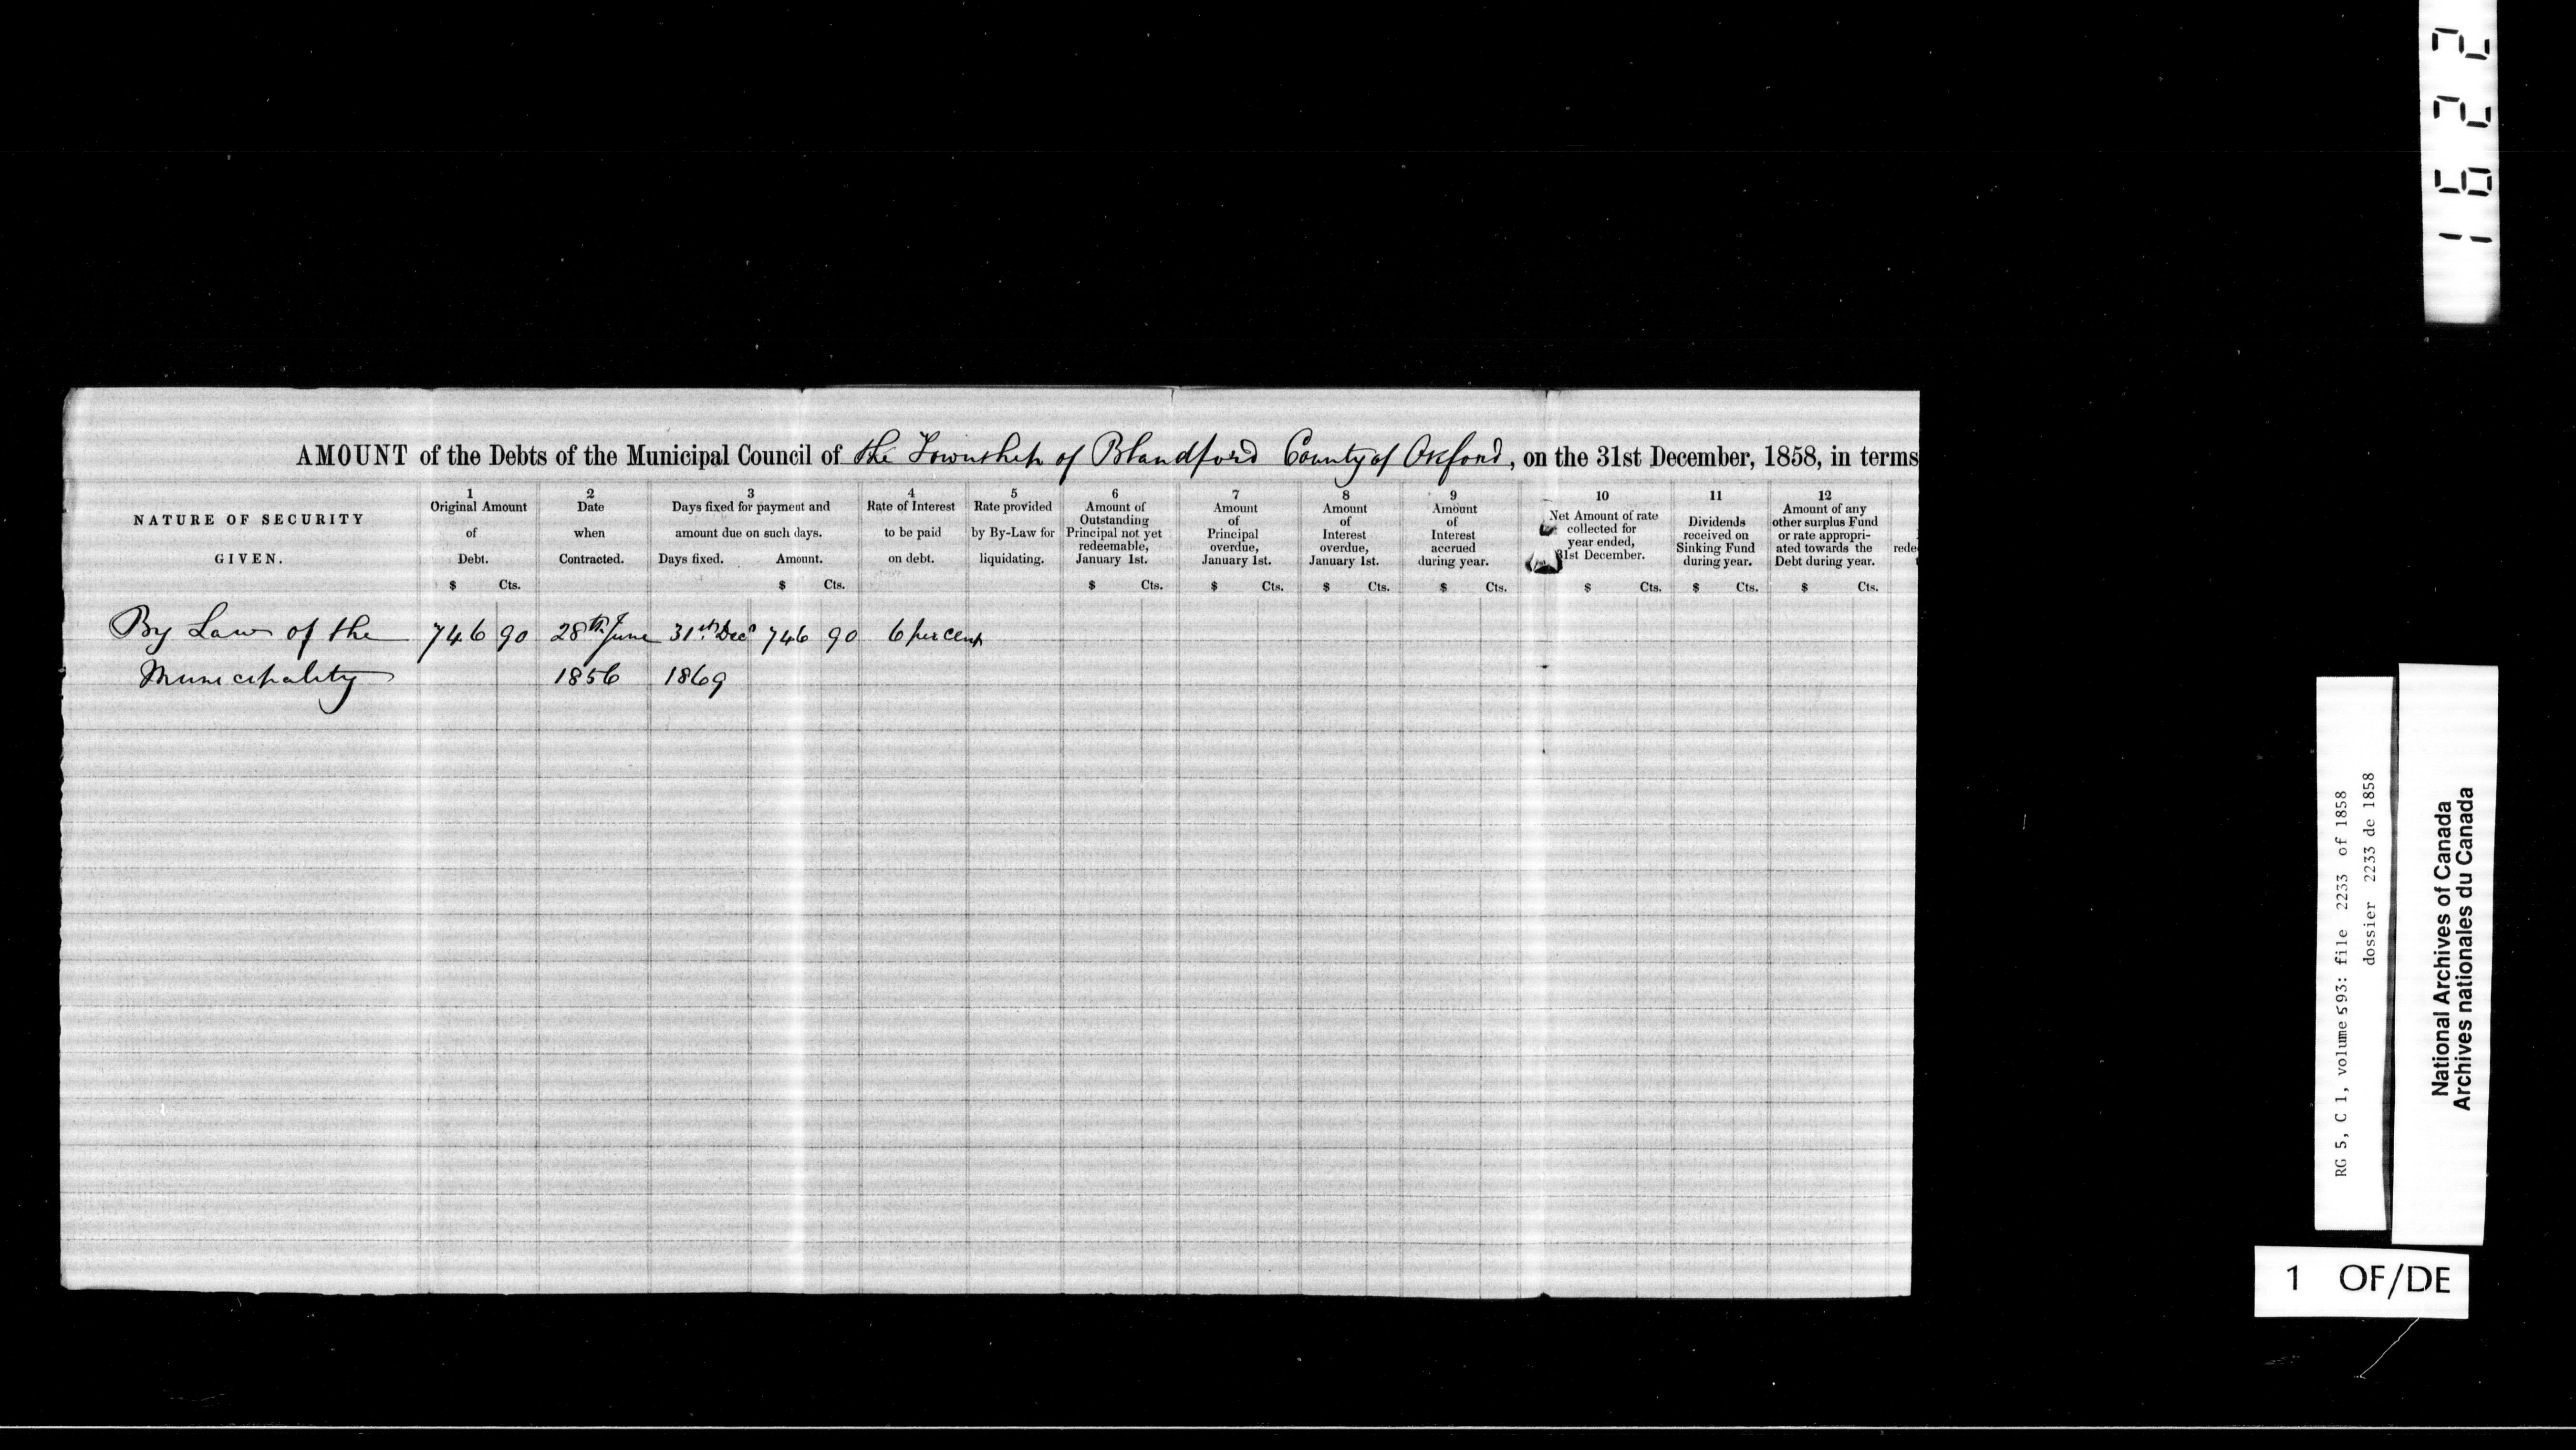 1622
AMOUNT of the Debts of the Municipal Council of the Township of Blandford County of Oxford, on the 31st December, 1858, in terms
NATURE OF SECURITY
GIVEN.
1
Original Amount
of
Debt.
$ Cts.
2
Date
when
Contracted.
3
Days fixed for payment and
amount due on such days.
Days fixed. Amount.
$ Cts.
4
Rate of Interest
to be paid
on debt.
5
Rate provided
by By-Law for
liquidating.
6
Amount of
Outstanding
Principal not yet
redeemable,
January 1st.
$ Cts.
7
Amount
of
Principal
overdue,
January 1st.
$ Cts.
8
Amount
of
Interest
overdue,
January 1st.
$ Cts.
9
Amount
of
Interest
accrued
during year.
$ Cts.
10
Net Amount of rate
collected for
year ended,
31st December.
$ Cts.
11
Dividends
received on
Sinking Fund
during year.
$ Cts.
12
Amount of any
other surplus Fund
or rate appropri-
ated towards the
Debt during year.
$ Cts.
rede
By Law of the 746 90 28th June 31st Decr 746 90 6 per cent
Municipality 1856 1869
RG 5, C 1, volume 593: file 2233 of 1858
dossier 2233 de 1858
National Archives of Canada
Archives nationales du Canada
1 OF/DE